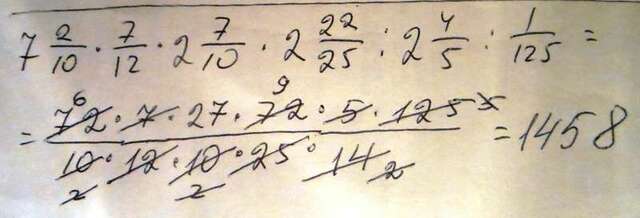 7 2/10 · 7/12 · 2 7/10 · 2 22/25 : 2 4/5 : 1/125 =
6 9
= 72 · 7 · 27 · 72 · 5 · 125 5 / 10 · 12 · 10 · 25 · 14 = 1458
2 2 2